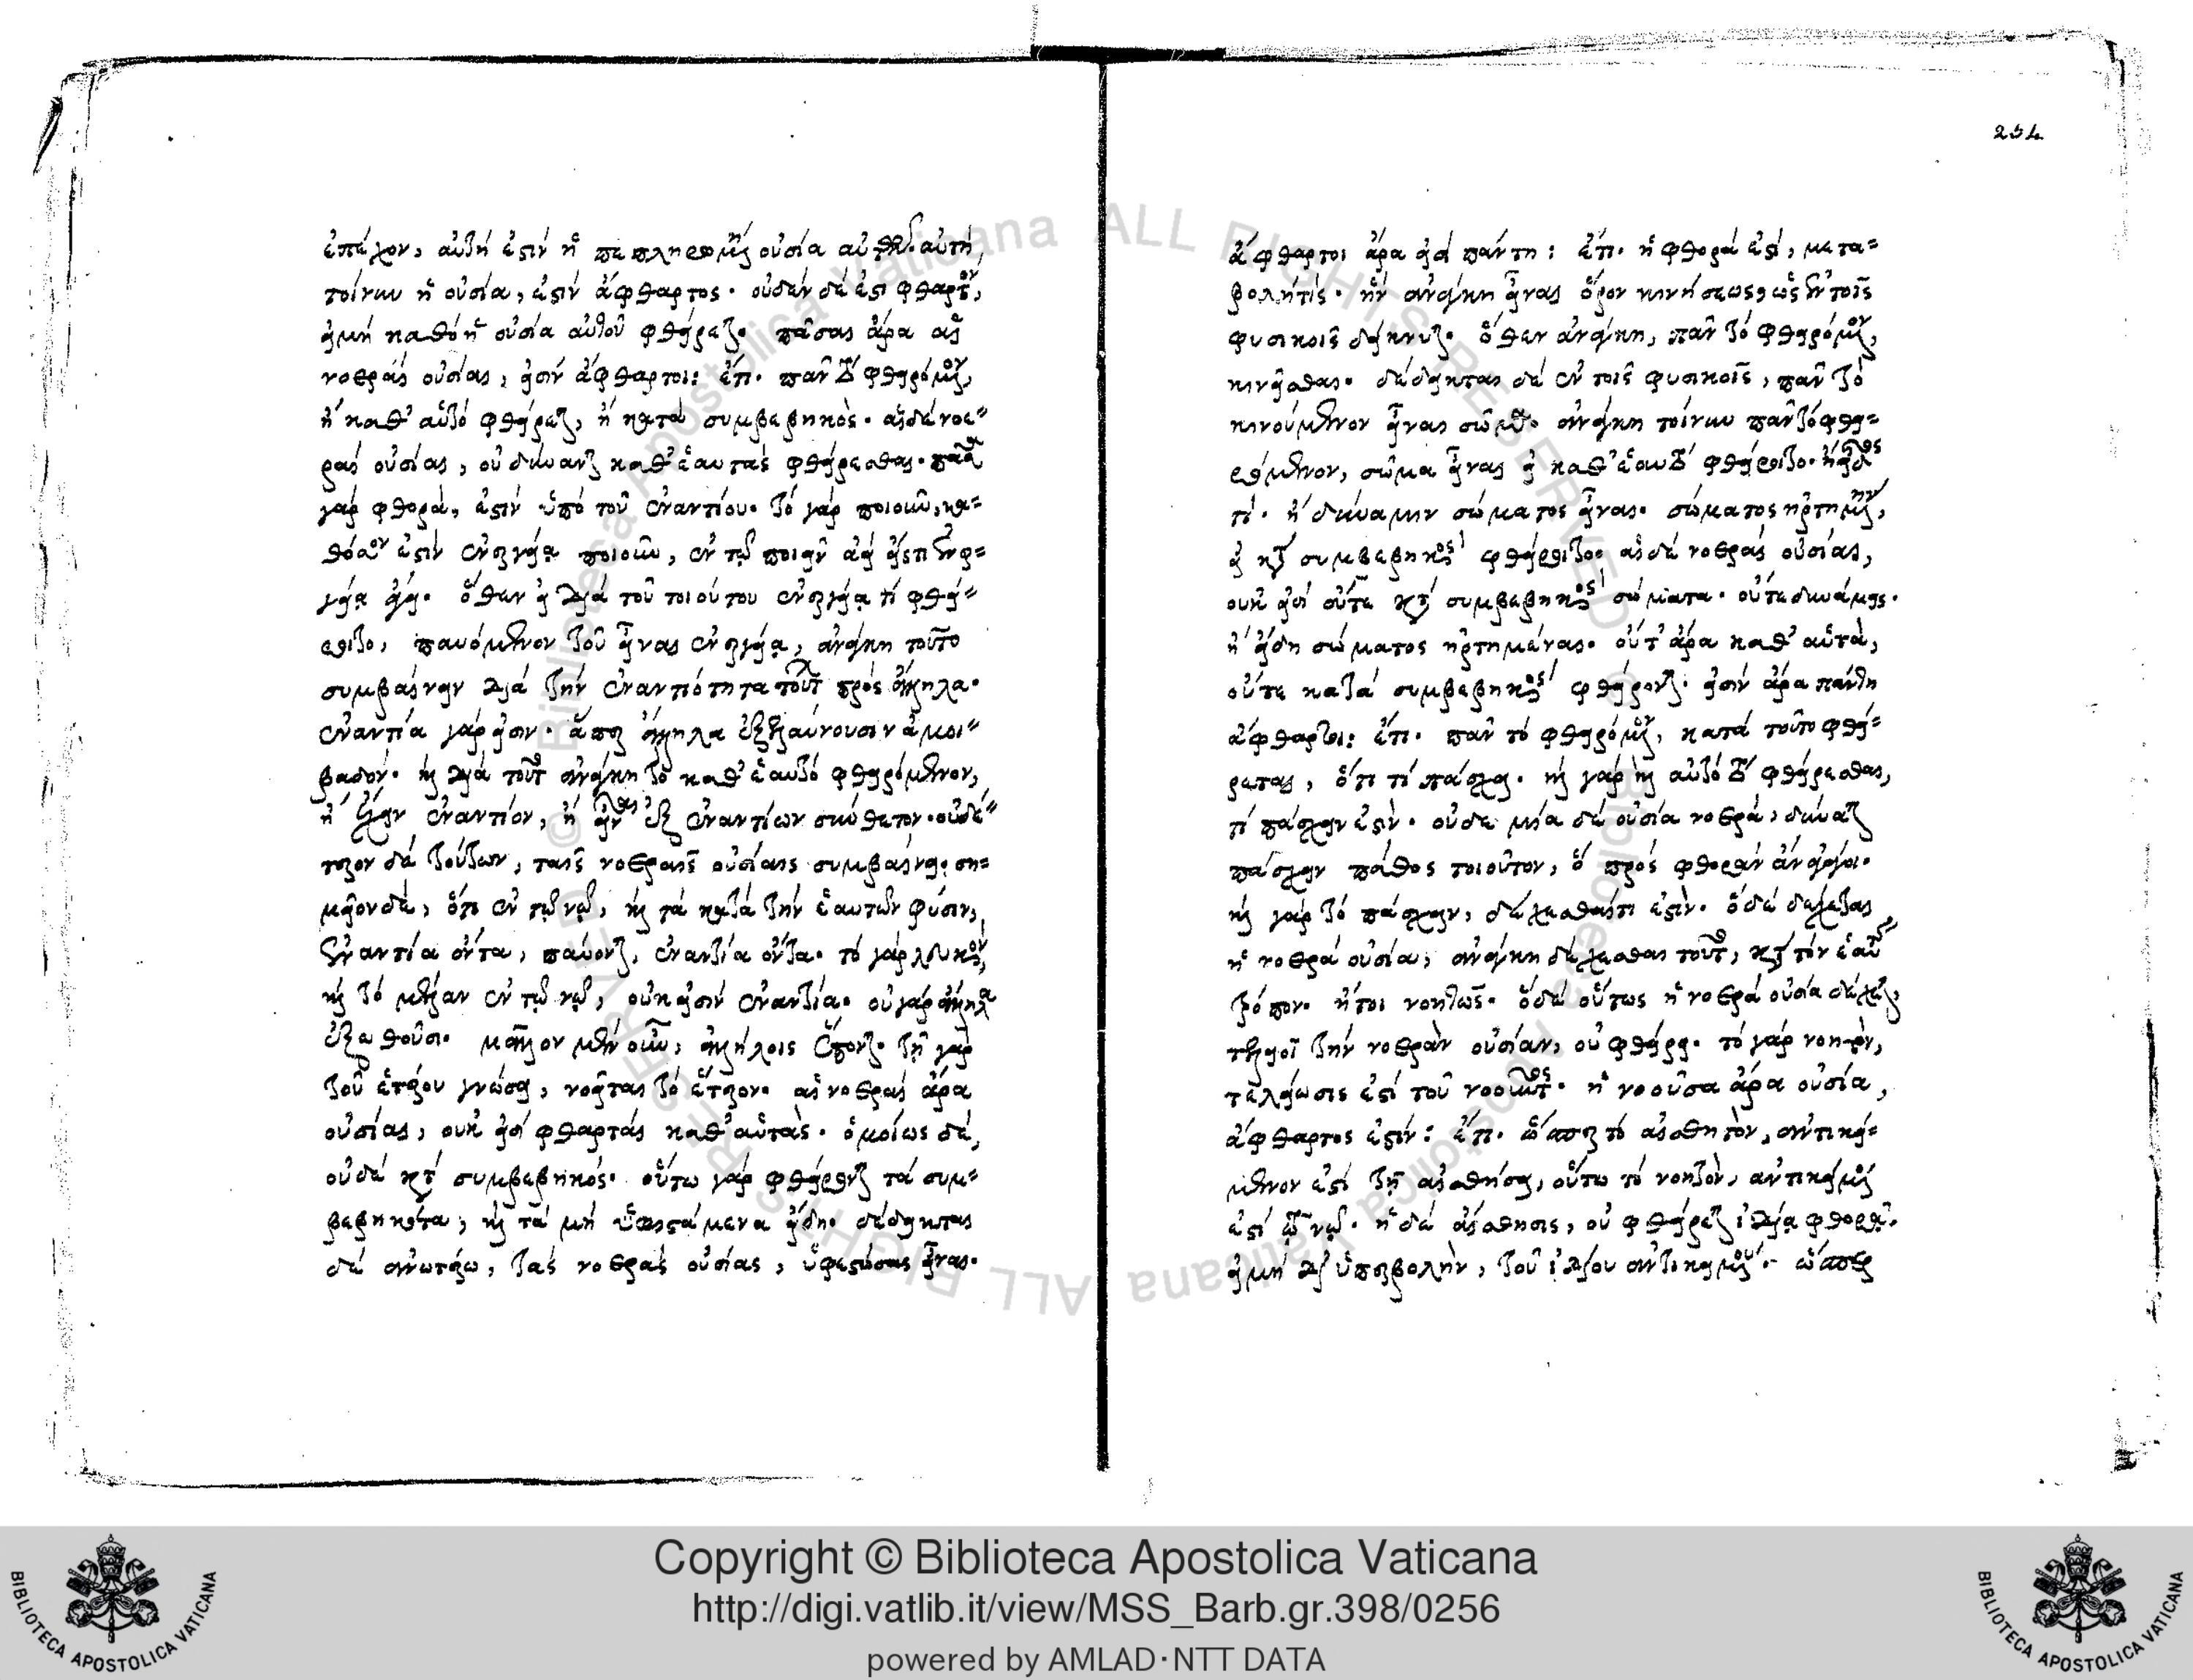 ἐπέχον, αὐτή ἐστιν ἡ πεπληρωμένη οὐσία αὐτὴ
τοίνυν ἡ οὐσία, ἐστὶν ἄφθαρτος. οὐδὲν δέ ἐστι φθαρτόν,
εἰμὴ καθὸ ἡ οὐσία αὐτοῦ φθείρεται. πᾶσαι ἄρα αἱ
νοεραὶ οὐσίαι, εἰσὶν ἄφθαρτοι: ἔτι. πᾶν τὸ φθειρόμενον,
ἢ καθ' αὑτὸ φθείρεται, ἢ κατὰ συμβεβηκὸς. αἱ δὲ νοε=
ραὶ οὐσίαι, οὐ δύνανται καθ' ἑαυτὰς φθείρεσθαι. πᾶσα
γὰρ φθορά, ἐστὶν ὑπὸ τοῦ ἐναντίου. τὸ γὰρ ποιοῦν, κα=
θόσον ἐστὶν ἐνεργείᾳ ποιοῦν, ἐν τῷ ποιεῖν ἀεὶ
ὅθεν εἰ διὰ τοῦ τοιούτου ἐνεργείᾳ τί φθεί=
ροιτο, παυόμενον τοῦ εἶναι ἐνεργείᾳ, ἀνάγκη τοῦτο
συμβαίνειν διὰ τὴν ἐναντιότητα τούτων πρὸς ἄλληλα.
ἐναντία γάρ εἰσιν. ἅπερ ἄλληλα ἐξελαύνουσιν ἀμοι=
βαδόν. καὶ διὰ τοῦτο ἀνάγκη τὸ καθ' ἑαυτὸ φθειρόμενον,
ἢ ἔχειν ἐναντίον, ἢ εἶναι ἐξ ἐναντίων σύνθετον. οὐδέ=
τερον δὲ τούτων, ταῖς νοεραῖς οὐσίαις συμβαίνει. ση=
μεῖον δὲ, ὅτι ἐν τῷ νῷ, καὶ τὰ κατὰ τὴν ἑαυτῶν φύσιν,
ἐναντία ὄντα, παύονται, ἐναντία ὄντα. τὸ γὰρ λευκὸν,
καὶ τὸ μέλαν ἐν τῷ νῷ, οὐκ εἰσὶν ἐναντία. οὐ γὰρ ἄλληλα
ἐξωθοῦσι. μᾶλλον μὲν οὖν, ἀλλήλοις ἕπονται. τῇ γὰρ
τοῦ ἑτέρου γνώσει, νοεῖται τὸ ἕτερον. αἱ νοεραὶ ἄρα
οὐσίαι, οὐκ εἰσὶ φθαρταὶ καθ' αὑτὰς. ὁμοίως δὲ,
οὐδὲ κατὰ συμβεβηκός. οὕτω γὰρ φθείρεται τὰ συμ=
βεβηκότα, καὶ τὰ μὴ ὑφιστάμενα εἴδη. δέδεικται
δὲ ἀνωτέρω, τὰς νοερὰς οὐσίας, ὑφεστώσας εἶναι.
254
ἄφθαρτοι ἄρα εἰσὶ πάντη: ἔτι. ἡ φθορά ἐστι, μετα=
βολήτίς. ἣν ἀνάγκη εἶναι ὅρον κινήσεως, ὡς ἐν τοῖς
φυσικοῖς δείκνυται. ὅθεν ἀνάγκη, πᾶν τὸ φθειρόμενον,
κινεῖσθαι. δέδεικται δὲ ἐν τοῖς φυσικοῖς, πᾶν τὸ
κινούμενον εἶναι σῶμα. ἀνάγκη τοίνυν πᾶν τὸ φθει=
ρόμενον, σῶμα εἶναι εἰ καθ' ἑαυτὸ φθείροιτο. ἢ εἶδός
τι. ἢ δύναμιν σώματος εἶναι. σώματος ἠρτημένην,
εἰ κατὰ συμβεβηκὸς φθείροιτο. αἱ δὲ νοεραὶ οὐσίαι,
οὐκ εἰσὶ οὔτε κατὰ συμβεβηκὸς σώματα. οὔτε δυνάμεις.
ἢ εἴδη σώματος ἠρτημέναι. οὔτ' ἄρα καθ' αὑτὰ,
οὔτε κατὰ συμβεβηκὸς φθείρονται. εἰσὶν ἄρα πάντη
ἄφθαρτοι: ἔτι. πᾶν τὸ φθειρόμενον, κατὰ τοῦτο φθεί=
ρεται, ὅτι τί πάσχει. καὶ γὰρ καὶ αὐτὸ τὸ φθείρεσθαι,
τί πάσχειν ἐστὶν. οὐδε μία δὲ οὐσία νοερὰ, δύναται
πάσχειν πάθος τοιοῦτον, ὃ πρὸς φθορὰν ἂν ἄγοι.
καὶ γὰρ τὸ πάσχειν, δέχεσθαί τι ἐστὶν. ὃ δὲ δέχεται
ἡ νοερὰ οὐσία, ἀνάγκη δέχεσθαι τοῦτο, κατὰ τὸν ἑαυτῆς
τρόπον. ἤτοι νοητῶς. ὃ δὲ οὕτως ἡ νοερὰ οὐσία δέχεται,
τελειοῖ τὴν νοερὰν οὐσίαν, οὐ φθείρει. τὸ γὰρ νοητὸν,
τελείωσις ἐστὶ τοῦ νοοῦντος. ἡ νοοῦσα ἄρα οὐσία,
ἄφθαρτος ἐστίν: ἔτι. ὥσπερ τὸ αἰσθητὸν, ἀντικεί=
μενον ἐστὶ τῇ αἰσθήσει, οὕτω τὸ νοητὸν, ἀντικείμενον
ἐστὶ τῷ νῷ. ἡ δὲ αἴσθησις, οὐ φθείρεται ἰδίᾳ φθορᾷ.
εἰμὴ δι' ὑπερβολὴν, τοῦ ἰδίου ἀντικειμένου. ὥσπερ
Copyright © Biblioteca Apostolica Vaticana
http://digi.vatlib.it/view/MSS_Barb.gr.398/0256
powered by AMLAD·NTT DATA
BIBLIOTECA APOSTOLICA VATICANA
BIBLIOTECA APOSTOLICA VATICANA